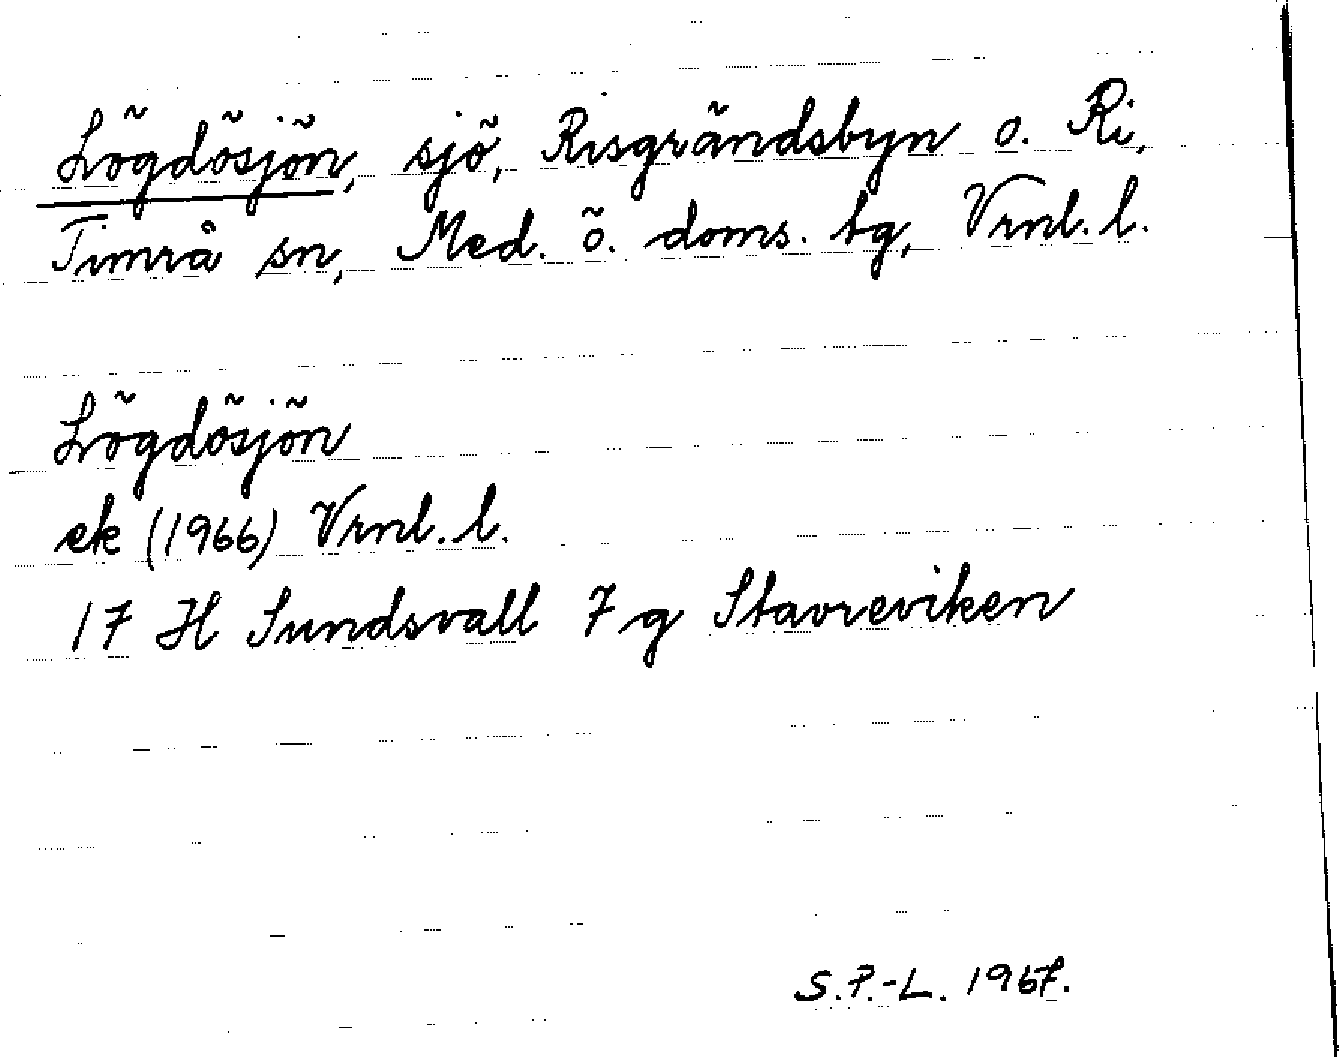 Lögdösjön, sjö, Risgrändsbyn o. Ri,
Timrå sn, Med. ö. doms. tg, Vrnl. l.
Lögdösjön
ek (1966) Vrnl. l.
17 H Sundsvall 7 g Stavreviken
S.P.-L. 1967.